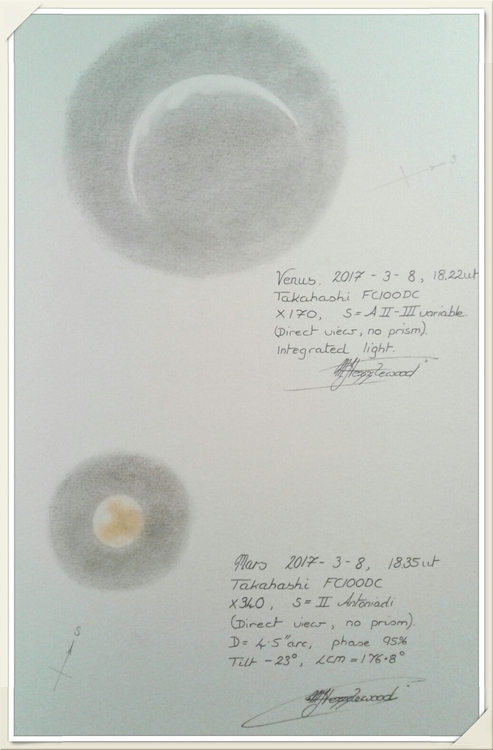 S
Venus. 2017 - 3 - 8, 18.22ut
Takahashi FC100DC
X170, S= A II-III variable.
(Direct view, no prism).
Integrated light.
Mars 2017- 3-8, 1835ut
Takahashi FC100DC
X340, S= II Antoniadi
(Direct view, no prism).
D= 4.5"arc, phase 95%
S
Tilt -23°, LCM = 176.8°